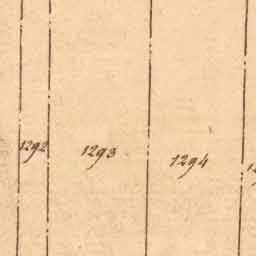 1292
1293
1294